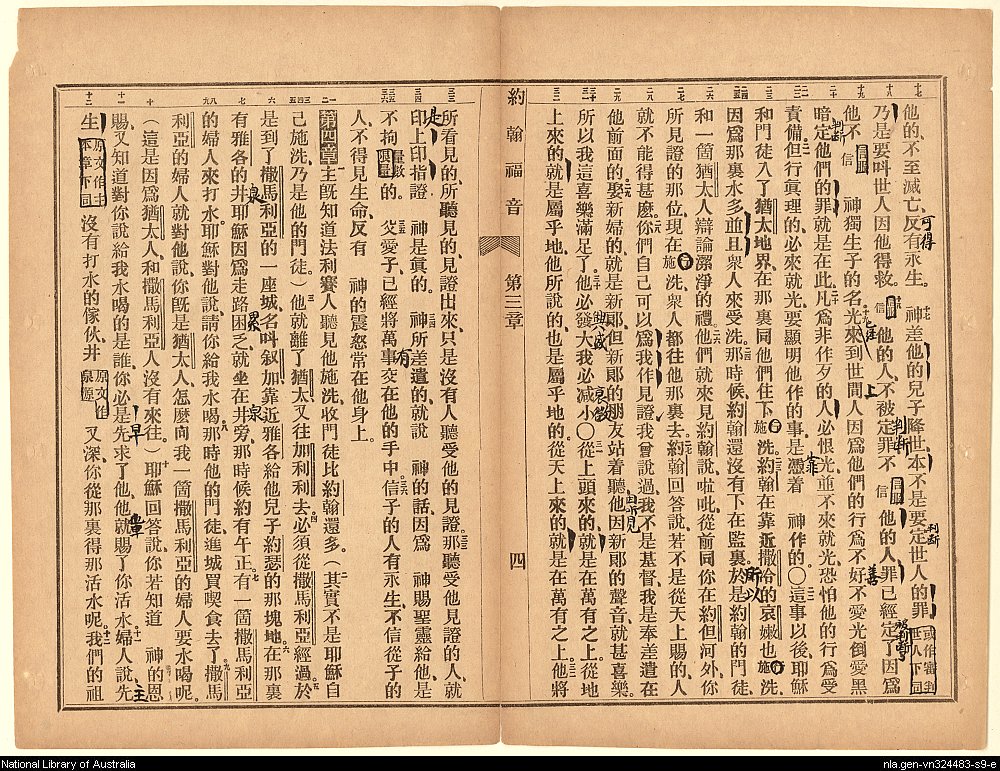 他的不至滅亡、反有永生。神差他的兒子降世、本不是要定世人的罪或作審判世人下同
乃是要叫世人因他得救。信他的人、不被定罪、不信他的人、罪已經定了、因爲
他不信神獨生子的名。光來到世間人因爲他們的行爲不好、不愛光倒愛黑
暗、定他們的罪、就是在此。凡爲非作歹的人必恨光、並不來就光、恐怕他的行爲受
責備。但行眞理的必來就光、要顯明他作的事、是憑着神作的。〇這事以後、耶穌
和門徒入了猶太地界、在那裏同他們住下施洗。約翰在靠近撒冷的哀嫩也施洗、
因爲那裏水多、並且衆人來受洗。那時候約翰還沒有下在監裏。於是約翰的門徒、
和一箇猶太人辯論潔淨的禮。他們就來見約翰說、啦吡、從前同你在約但河外、你
所見證的那位、現在施洗、衆人都往他那裏去。約翰回答說、若不是從天上賜的、人
就不能得甚麽。你們自己可以爲我作見證、我曾說過、我不是基督、我是奉差遣在
他前面的。娶新婦的、就是新郞、但新郞的朋友站着聽他、因新郞的聲音就甚喜樂。
所以我這喜樂滿足了。他必發大、我必減小。〇從上頭來的、就是在萬有之上。從地
上來的、就是屬乎地、他所說的、也是屬乎地的、從天上來的、就是在萬有之上。他將
約翰福音 第三章 四
所看見的、所聽見的、見證出來、只是沒有人聽受他的見證。那聽受他見證的人、就
印上印、指證神是真的。神所差遣的、就說神的話、因爲神賜聖靈給他、是
不拘限量的。父愛子、已經將萬事交在他的手中。信子的人有永生、不信從子的
人、不得見生命、反有神的震怒常在他身上。
第四章主旣知道法利賽人聽見他施洗收門徒、比約翰還多。（其實不是耶穌自
己施洗、乃是他的門徒。）他就離了猶太、又往加利利去。必須從撒馬利亞經過。於
是到了撒馬利亞的一座城、名叫叙加、靠近雅各給他兒子約瑟的那塊地。在那裏
有雅各的井、耶穌因爲走路困乏、就坐在井旁、那時候約有午正。有一箇撒馬利亞
的婦人來打水、耶穌對他說、請你給我水喝。那時他的門徒、進城買喫食去了。撒馬
利亞的婦人就對他說、你旣是猶太人、怎麽向我一箇撒馬利亞的婦人要水喝呢。
（這是因爲猶太人、和撒馬利亞人沒有來往。）耶穌回答說、你若知道神的恩
賜、又知道對你說給我水喝的是誰、你必是先求了他、他就賜了你活水。婦人說、先
生原文作主本章下同沒有打水的傢伙、井原文作泉源又深、你從那裏得那活水呢。我們的祖
National Library of Australia
nla.gen-vn324483-s9-e